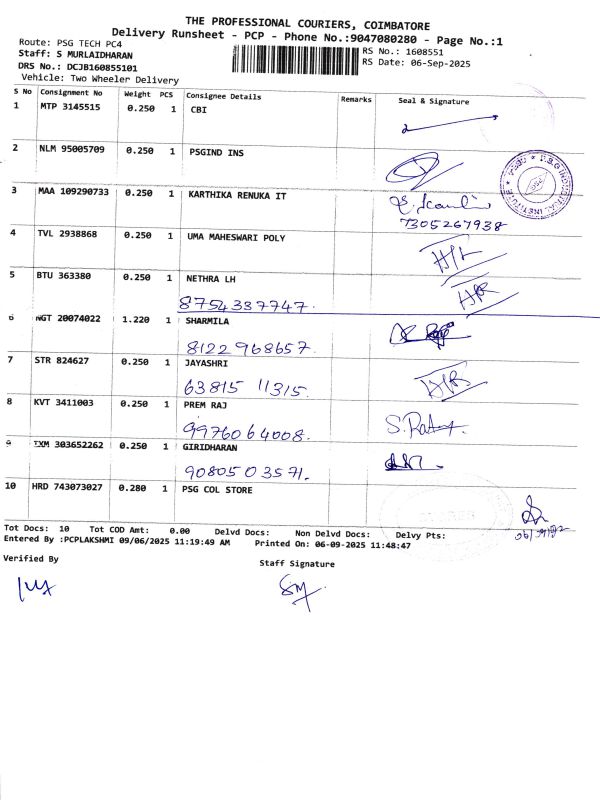 THE PROFESSIONAL COURIERS, COIMBATORE
Delivery Runsheet - PCP - Phone No.:9047080280 - Page No.:1
Route: PSG TECH PC4
Staff: S MURLAIDHARAN
DRS No.: DCJB160855101
Vehicle: Two Wheeler Delivery
RS No.: 1608551
RS Date: 06-Sep-2025
S No Consignment No Weight PCS Consignee Details Remarks Seal & Signature
1 MTP 3145515 0.250 1 CBI
2 NLM 95005709 0.250 1 PSGIND INS
3 MAA 109290733 0.250 1 KARTHIKA RENUKA IT
7305267938
4 TVL 2938868 0.250 1 UMA MAHESWARI POLY
5 BTU 363380 0.250 1 NETHRA LH
8754337747.
6 NGT 20074022 1.220 1 SHARMILA
8122968657.
7 STR 824627 0.250 1 JAYASHRI
63815 11315.
8 KVT 3411003 0.250 1 PREM RAJ
9976064008.
9 TXM 303652262 0.250 1 GIRIDHARAN
9080503571.
10 HRD 743073027 0.280 1 PSG COL STORE
Tot Docs: 10 Tot COD Amt: 0.00 Delvd Docs: Non Delvd Docs: Delvy Pts:
Entered By :PCPLAKSHMI 09/06/2025 11:19:49 AM Printed On: 06-09-2025 11:48:47
Verified By
Staff Signature